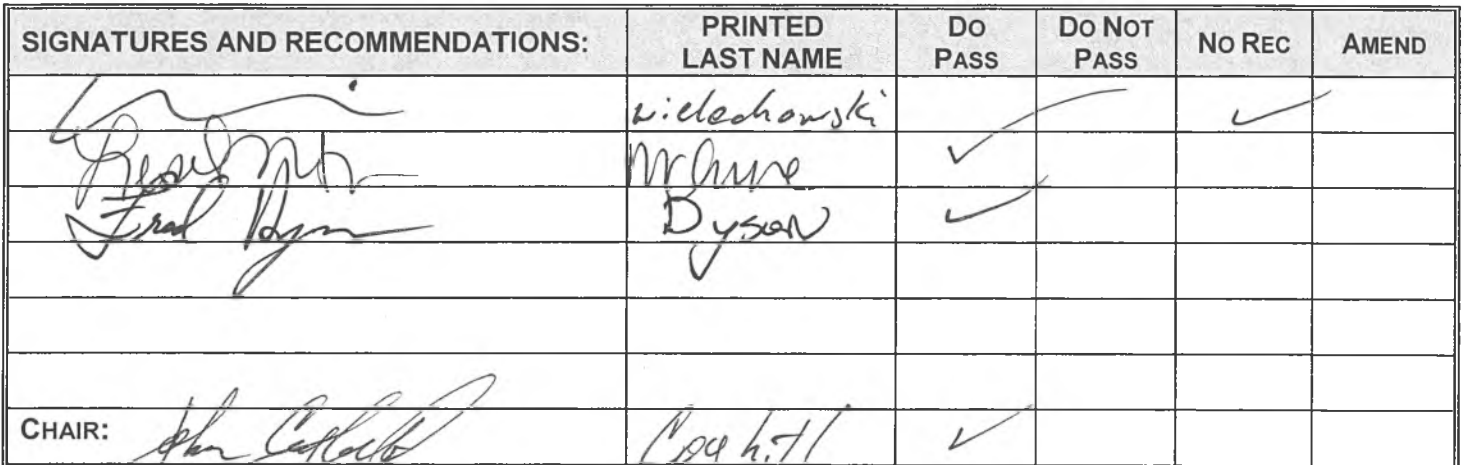 SIGNATURES AND RECOMMENDATIONS: PRINTED LAST NAME DO PASS DO NOT PASS NO REC AMEND
Wielechowski ✓
McGuire ✓
Fred Dyson Dyson ✓
CHAIR: John Coghill Coghill ✓